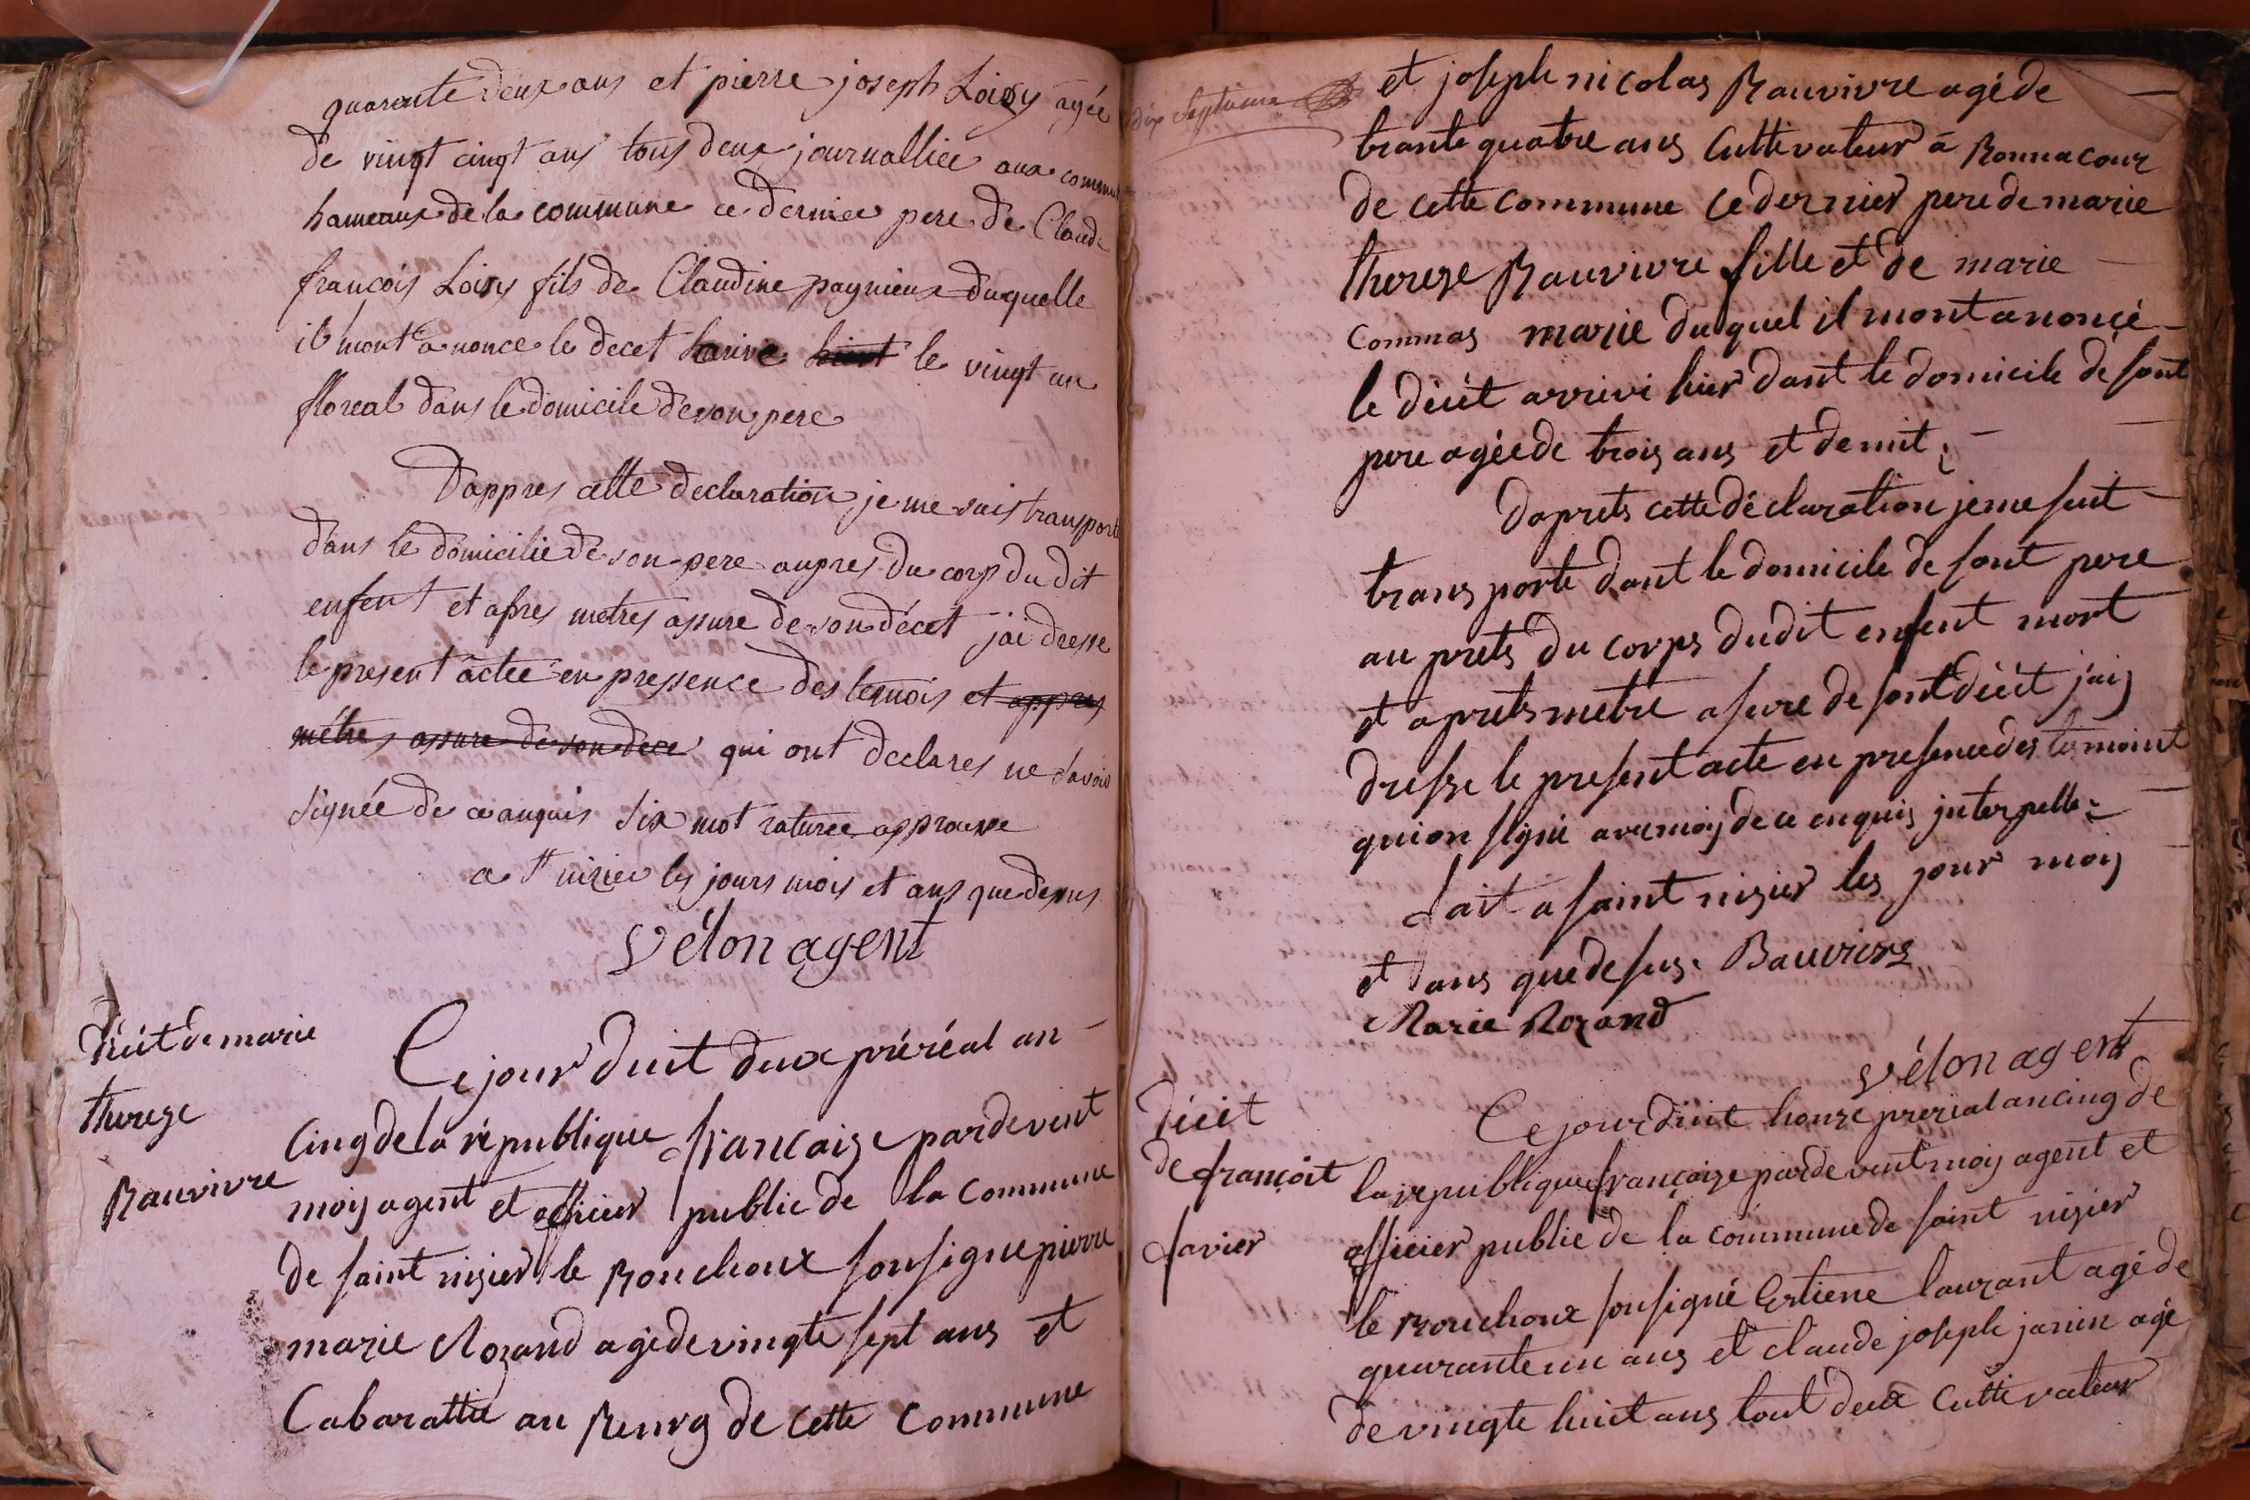 quarente deux ans et pierre joseph Loisy agée
de vingt cinqt ans tous deux journalliée aux commu
hameaux de la commune ce dernier pere de Claude
françois Loisy fils de Claudine pagnieux duquelle
il mont anoncé le decet harive hiert le vingt un
floreal dans le domicile de son pere
Dappres cette declaration je me suis transporte
dans le domicilie de son pere aupres du corp du dit
enfent et apres metres assure de son décet jai dresse
le present actee en pressence des temois et appres
métres assure de son dece qui ont declares ne savoir
signée de ce anquis six mot raturée approuve
a st nizier les jours mois et ans que desus
Vélon agent
décit de marie
thereze
Bauvivre
Ce jour duit deux préréal an
cinq de la république française pardevent
moij agent et officier public de la commune
de saint nizier le Bouchoux sousigne pierre
marie Rozand agé de vingte sept ans et
Cabarattié au Bourg de cette commune
dix septieme
et joseph nicolas Bauvivre agé de
trante quatre ans Cultivateur à Bonnacour
de cette commune ce dernier pere de marie
thereze Bauvivre fille et de marie
commas marie duquel il mont anonçé
le décit arrivé hier dant le domicile de sont
pere agée de trois ans et demit
daprets cette déclaration je me suit
trans porte dant le domicile de sont pere
au prets du corps dudit enfent mort
et aprets metre asure de sont décit j'aij
dresse le present acte en presence des temoint
qui on signé avec moij de ce enquis interpelle
fait a saint nizier les jour moij
et ans que de sus. Bauvivre
Marie Rozand
Vélon agent
décit
de françoit
favier
Ce jourduit honze prerial an cinq de
la republique françaize pardevent moij agent et
officier public de la commune de saint nizier
le Bouchoux sousigné Estiene laurant agé de
quarante un ans et claude joseph janin agé
de vingte huit ans tout deux cultivateur